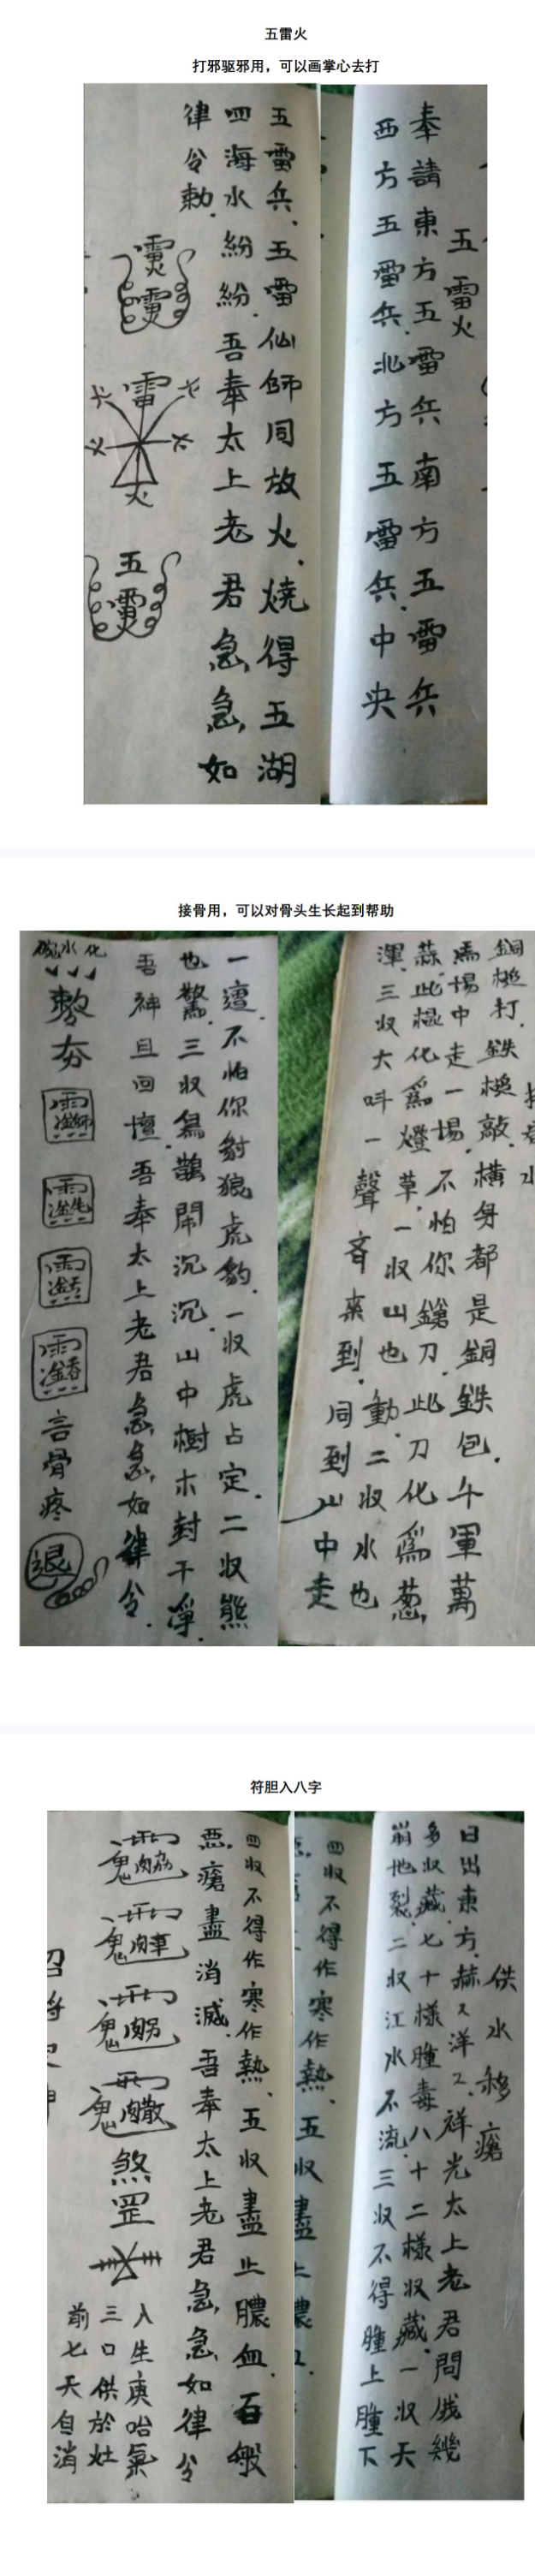 五雷火
打邪驱邪用，可以画掌心去打
五雷火
奉請東方五雷兵南方五雷兵
西方五雷兵.北方五雷兵.中央
五雷兵.五雷仙師同放火.燒得五湖
四海水紛紛.吾奉太上老君急急如
律令勅.
雷
火
五
接骨用，可以对骨头生长起到帮助
銅槌打.鉄槌敲.橫身都是銅鉄包.千軍萬
馬塲中走一塲.不怕你鎗刀.此刀化為葱,
蒜.此棍化為燈草.一收山也動.二收水也
渾.三收大叫一聲齊來到.同到山中走
一遭.不怕你豺狼虎豹.一收虎占定.二收熊
也驚.三收鴉鵲鬧沉沉.山中樹木封干凈.
吾神且回壇.吾奉太上老君急急如律令.
碗水化
敕
言骨疼
退
符胆入八字
供水移瘡
日出東方.赫々洋々.祥光太上老君問伐幾
多收藏.七十樣腫毒八十二樣收藏.一收天
崩地裂.二收江水不流.三收不得腫上腫下
四收不得作寒作熱.五收盡止膿血.百般
惡瘡盡消滅.吾奉太上老君急急如律令
煞罡
入生庚哈氣
三口供於灶
前七天自消